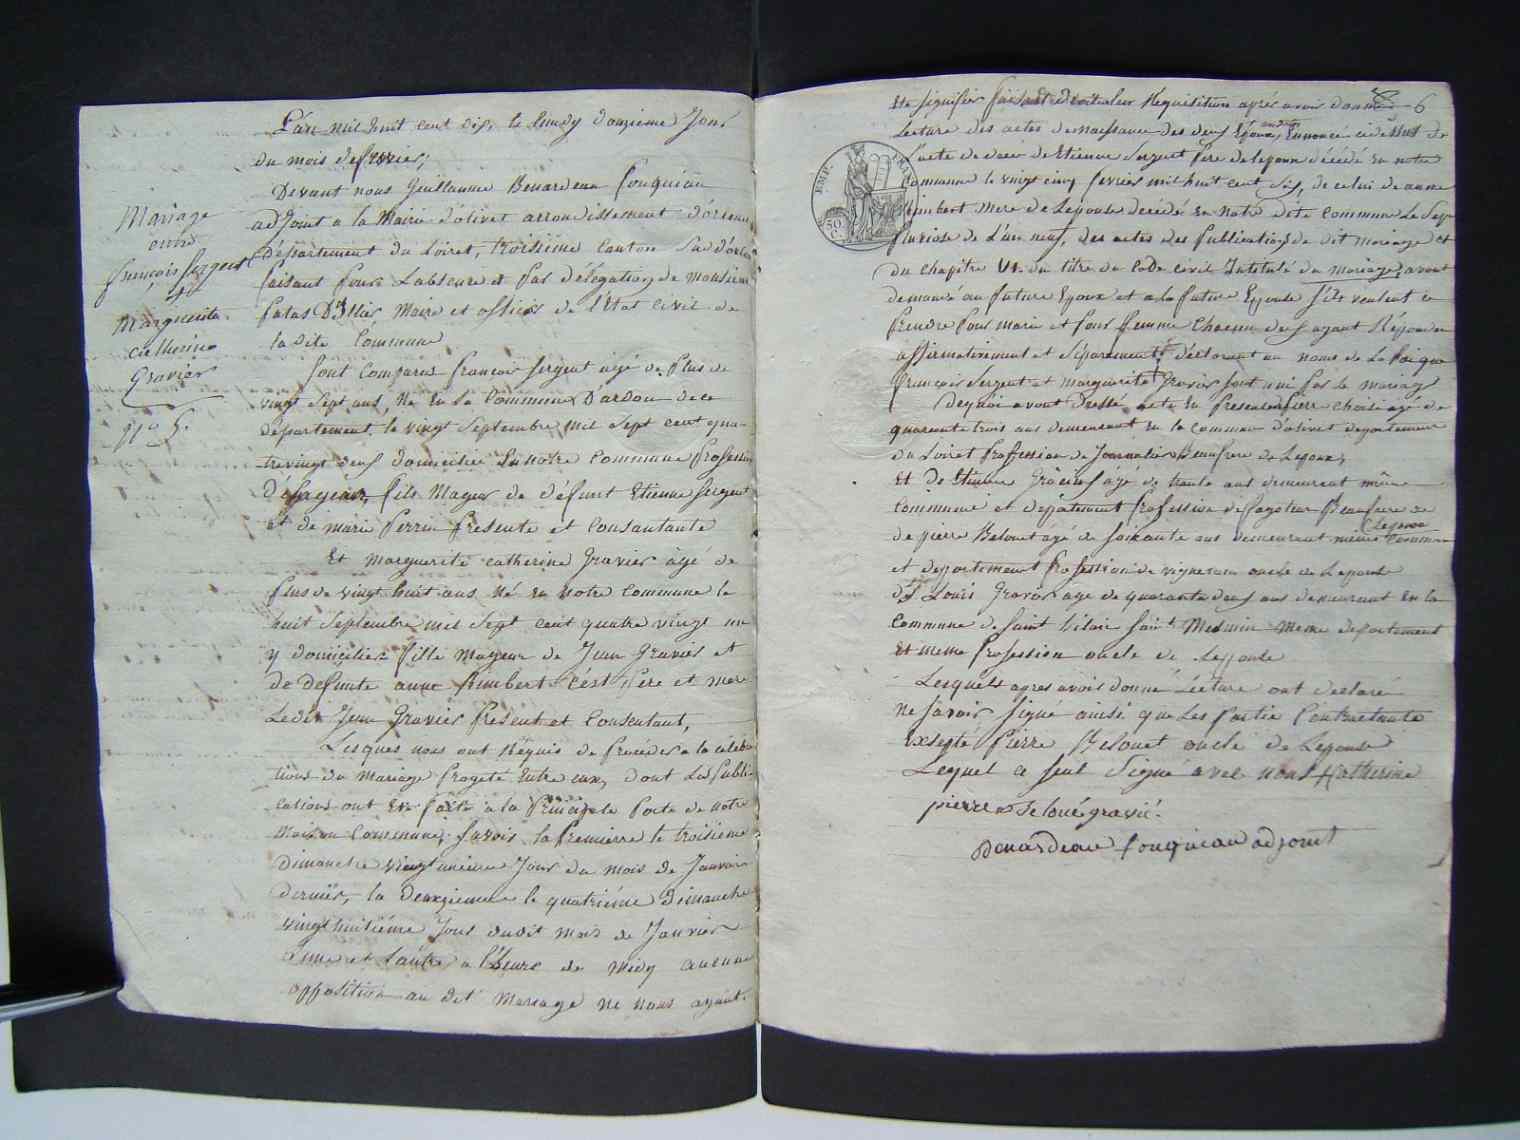 L'an mil huit cent dix, le lundy douzieme Jour
du mois de fevrier;
Devant nous Guillaume Benardeau fouqueau
adjoint a la Mairie d'olivet arrondissement d'orleans
département du Loiret, troisieme canton Sud d'orleans
faisant pour L'absence et par délégation de monsieur
Maire et officier de l'Etat Civil de
la dite Commune
Sont Comparus francois Sergent agé de Plus de
vingt Sept ans, Né en La Commune D'ardon de ce
département le vingt Septembre mil Sept cent qua-
trevingt deux domicilié En notre Commune Profession
fils Mageur de défunt Etienne Sergent
et de marie Perrin presente et Consantante
Et marguerite catherine Gravier agé de
plus de vingt huit ans Né en Notre Commune le
huit Septembre mil Sept cent quatre vingt un
y domiciliee fille Mageur de Jean Gravier et
de defunte anne Rimbert Cest Pere et mere
Ledit Jean Gravier present et Consentant,
Lesques nous ont Requis de Procéder a la célébra
tions du Mariage Progeté Entre eux, dont Les Publi-
cations ont Eté faite a la Principale Porte de Notre
Maison Commune; Savoir la Premierre le troisieme
Dimanche vingt unieme Jour du mois de Janvier
dernier, la deuxzieme le quatriéme Dimanche
vingt huitiéme Jour dudit mois de Janvier
L'une et L'autre a l'heure de Midy aucune
opposition au dit Mariage ne nous ayant
Mariage
entre
françois Sergent
et
Marguerite
catherine
Gravier
N° 5.
6
Eté Signifier faisant droit a leur Requisition aprés avoir donné
Lecture des actes de naissance des deux Epoux, Enoncé cidessus de
L'acte de décé de Etienne Sergent Pere de Lepoux décédé en notre
Commune le vingt cinq fevrier mil huit cent Six, de celui de anne
Rimbert Mere de Lepouse decédé en Notre dite Commune Le Sept
Pluviose de L'an neuf, Des actes des Publications de dit mariage et
du chapitre VI. du titre du Code civil Intitulé du mariage, avons
demandé au future Epoux et a la future Epouse S'ils veulent se
Prendre Pour mari et Pour femme Chacun deux ayant Répondu
affirmativement et séparement, déclarons au noms de La Loi que
francois Sergent et marguerite Gravier sont uni par le mariage
Dequoi avons Dressé acte En Presence de Pierre agé de
quarente trois ans demeurant en la commune d'olivet departement
du Loiret Profession de Journalier Beaufrere de Lepoux,
Et de Etienne Gravier agé de trente ans demeurant même
Commune et département Profession de fagoteur Beaufrere de
Lepoux
de pierre Belouet agé de soixante ans demeurant même Commune
et departement Profession de vigneron oncle de Lepouse
de Louis Gravier age de quarante deux ans demeurant En la
Commune de Saint hilaire Saint Mesmin Meme département
et meme Profession oncle de Lepouse
Lesquels apres avoir donné Lecture ont déclaré
ne Savoir Signé ainsi que Les Partie Contractante
Exsepté Pierre Belouet oncle de Lepouse
Lequel a seul Signé avec nous Katherine
pierre Beloué gravié.
Benardeau fouqueau adjoint
EMP. FRAN.
50 C.